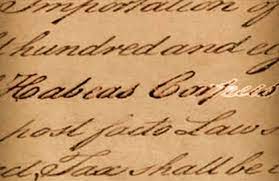 Importation of
hundred and
Habeas Corpus
post facto Law
Tax shall be